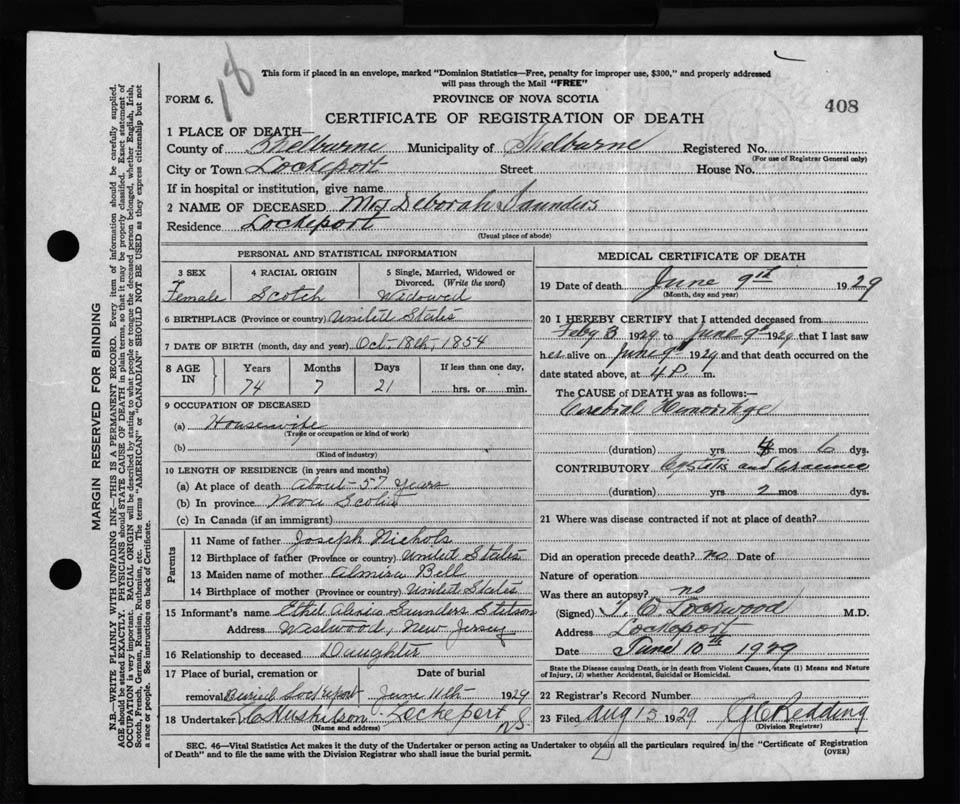 18
This form if placed in an envelope, marked "Dominion Statistics—Free, penalty for improper use, $300," and properly addressed
will pass through the Mail "FREE"
FORM 6.
PROVINCE OF NOVA SCOTIA
408
CERTIFICATE OF REGISTRATION OF DEATH
1 PLACE OF DEATH—
County of Shelburne Municipality of Shelburne Registered No.
(For use of Registrar General only)
City or Town Lockeport Street House No.
If in hospital or institution, give name
2 NAME OF DECEASED Mrs Deborah Saunders
Residence Lockeport
(Usual place of abode)
PERSONAL AND STATISTICAL INFORMATION
3 SEX 4 RACIAL ORIGIN 5 Single, Married, Widowed or
Divorced. (Write the word)
Female Scotch Widowed
6 BIRTHPLACE (Province or country) United States
7 DATE OF BIRTH (month, day and year) Oct. 18th, 1854
8 AGE IN Years Months Days If less than one day,
74 7 21 hrs. or min.
9 OCCUPATION OF DECEASED
(a) Housewife
(Trade or occupation or kind of work)
(b)
(Kind of industry)
10 LENGTH OF RESIDENCE (in years and months)
(a) At place of death About 57 years
(b) In province Nova Scotia
(c) In Canada (if an immigrant)
Parents
11 Name of father Joseph Nichols
12 Birthplace of father (Province or country) United States
13 Maiden name of mother Almira Bell
14 Birthplace of mother (Province or country) United States
15 Informant's name Ethel Saunders Stetson
Address New Jersey
16 Relationship to deceased Daughter
17 Place of burial, cremation or
removal Buried Lockeport June 11th 1929
18 Undertaker Lockeport NS
(Name and address)
MEDICAL CERTIFICATE OF DEATH
19 Date of death June 9th 1929
(Month, day and year)
20 I HEREBY CERTIFY that I attended deceased from
Feby 3 1929 to June 9th 1929 that I last saw
her alive on June 9th 1929 and that death occurred on the
date stated above, at 4 P. m.
The CAUSE of DEATH was as follows:—
Cerebral
(duration) yrs mos 6 dys.
CONTRIBUTORY Cystitis and
(duration) yrs 2 mos dys.
21 Where was disease contracted if not at place of death?
Did an operation precede death? no Date of
Nature of operation
Was there an autopsy? no
(Signed) Lockwood M.D.
Address Lockeport
Date June 10th 1929
State the Disease causing Death, or in death from Violent Causes, state (1) Means and Nature
of Injury, (2) whether Accidental, Suicidal or Homicidal.
22 Registrar's Record Number
23 Filed Aug 15 1929 Redding
(Division Registrar)
SEC. 46—Vital Statistics Act makes it the duty of the Undertaker or person acting as Undertaker to obtain all the particulars required in the "Certificate of Registration
of Death" and to file the same with the Division Registrar who shall issue the burial permit. (OVER)
MARGIN RESERVED FOR BINDING
N.B.—WRITE PLAINLY WITH UNFADING INK—THIS IS A PERMANENT RECORD. Every item of information should be carefully supplied.
AGE should be stated EXACTLY. PHYSICIANS should STATE CAUSE OF DEATH in plain terms, so that it may be properly classified. Exact statement of
OCCUPATION is very important. RACIAL ORIGIN will be described by stating to what people or tongue the deceased person belonged, whether English, Irish,
Scotch, French, German, Russian, Ruthenian, etc. The terms "AMERICAN" or "CANADIAN" SHOULD NOT BE USED as they express citizenship but not
a race or people. See instructions on back of Certificate.